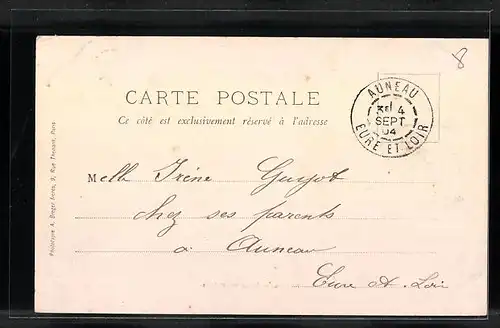 8
CARTE POSTALE
Ce côté est exclusivement réservé à l'adresse
AUNEAU
4
SEPT
04
EURE ET LOIR
Melle Irène Guyot
chez ses parents
à Auneau
Eure et Loir
Phototypie A. Breger frères, 9, Rue Thénard, Paris